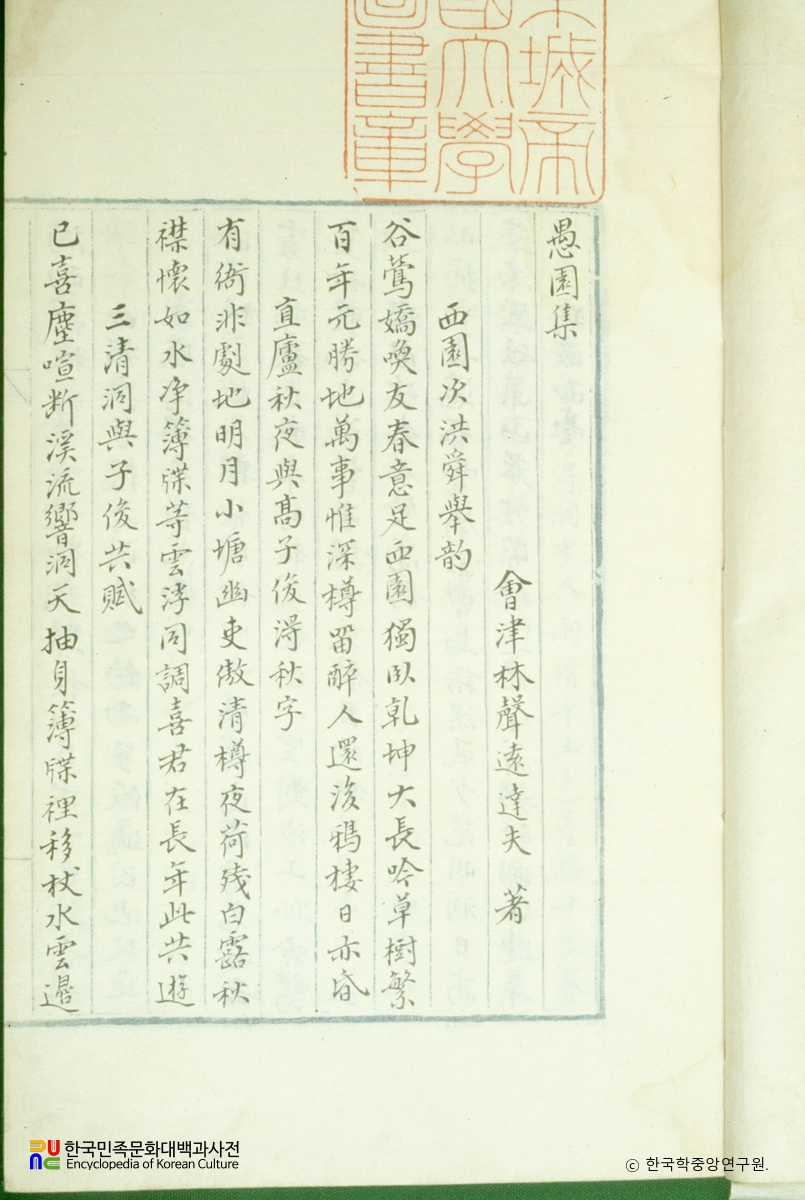 城帝
國大學
圖書章
愚園集
會津林聲遠達夫 著
西園次洪舜擧韵
谷鶯嬌喚友春意足西園獨臥乾坤大長吟草樹繁
百年元勝地萬事惟深樽留醉人還後鴉棲日亦昏
直廬秋夜與高子俊得秋字
有衙非劇地明月小塘幽吏傲清樽夜荷殘白露秋
襟懷如水净簿牒等雲浮同調喜君在長年此共遊
三清洞與子俊共賦
已喜塵喧斷溪流響洞天抽身簿牒裡移杖水雲邊
한국민족문화대백과사전
Encyclopedia of Korean Culture
ⓒ 한국학중앙연구원.